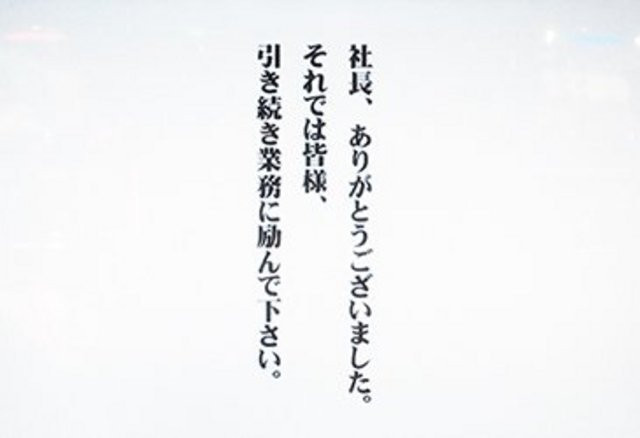 社長、ありがとうございました。
それでは皆様、
引き続き業務に励んで下さい。